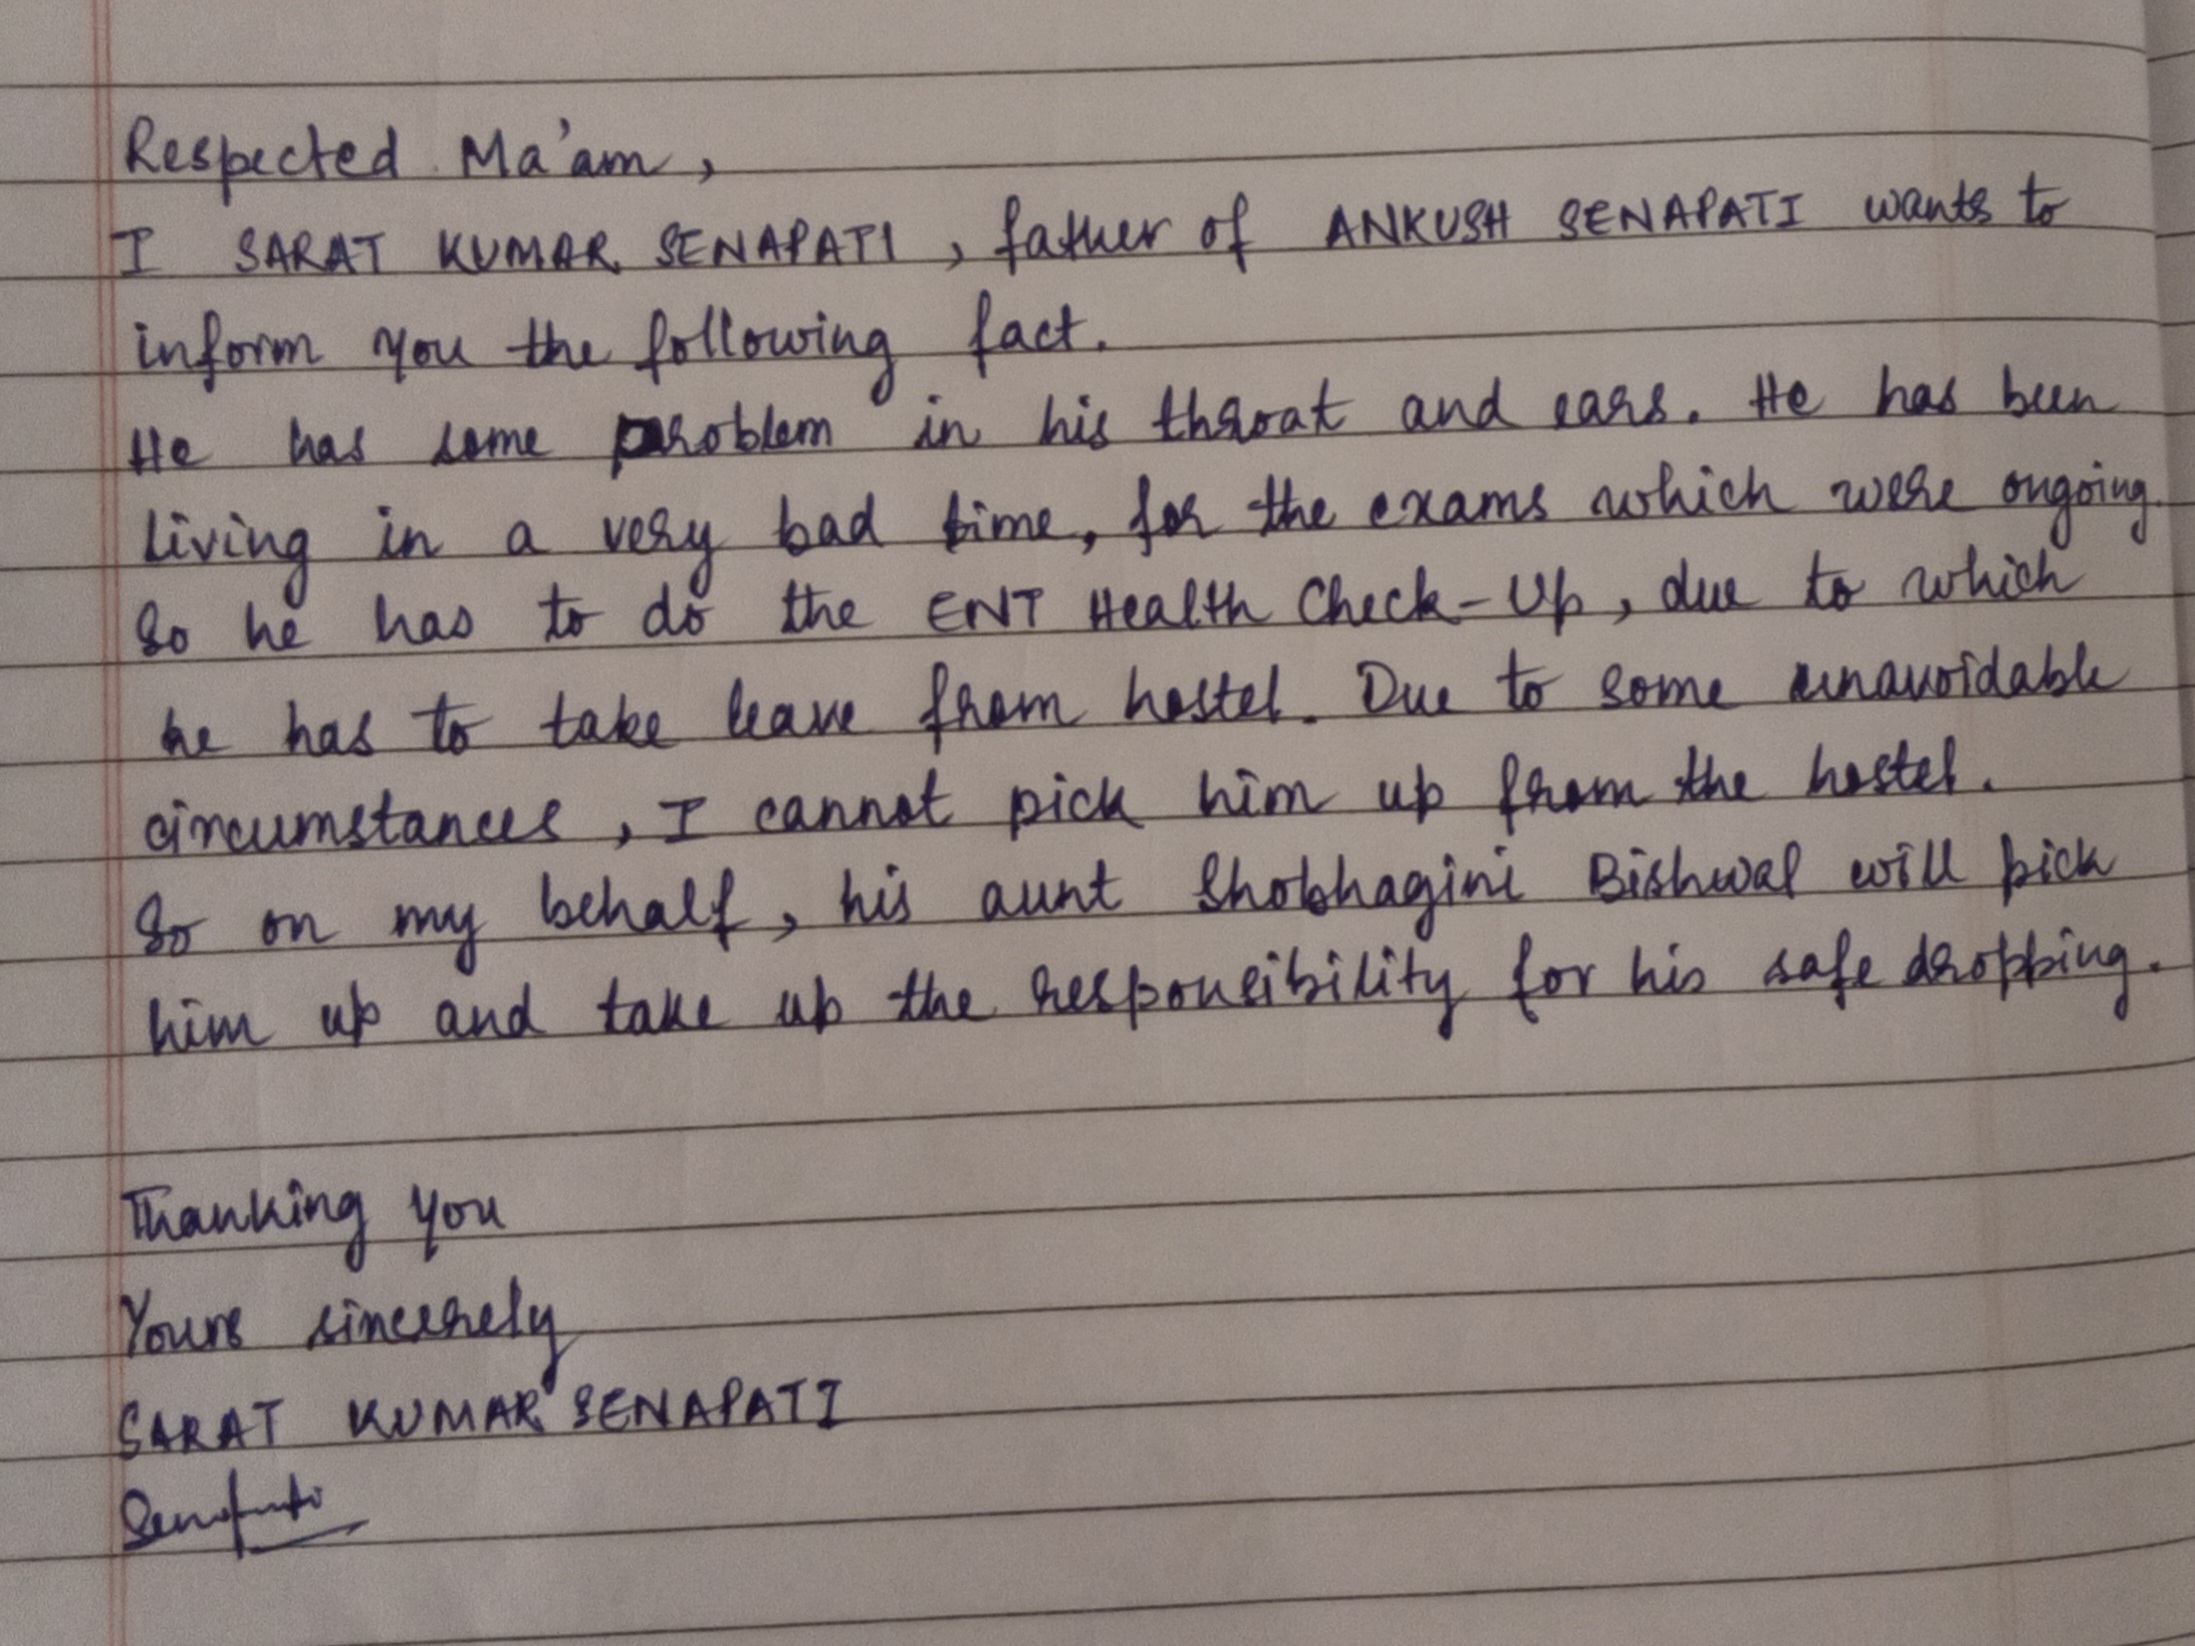 Respected Ma'am,
I SARAT KUMAR SENAPATI, father of ANKUSH SENAPATI wants to
inform you the following fact.
He has some problem in his throat and ears. He has been
living in a very bad time, for the exams which were ongoing.
So he has to do the ENT Health Check-Up, due to which
he has to take leave from hostel. Due to some unavoidable
circumstances, I cannot pick him up from the hostel.
So on my behalf, his aunt Shobhagini Bishwal will pick
him up and take up the responsibility for his safe dropping.
Thanking you
Yours sincerely
SARAT KUMAR SENAPATI
Senapati